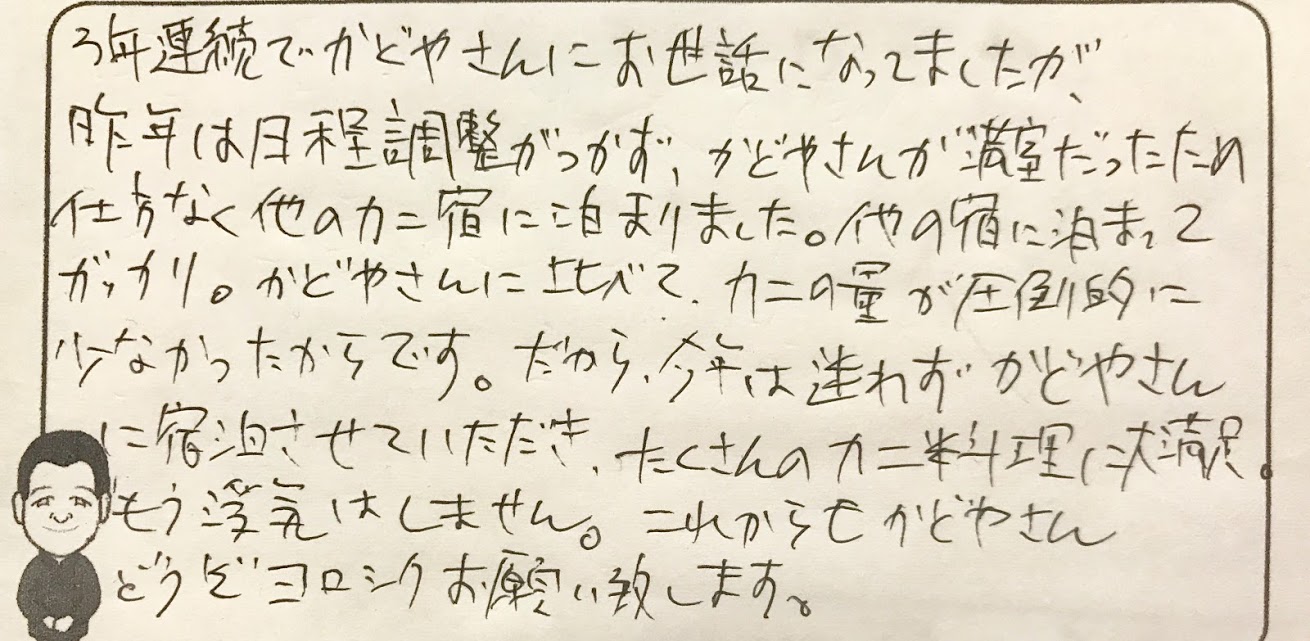 3年連続でかどやさんにお世話になってましたが、
昨年は日程調整がつかず、かどやさんが満室だったため
仕方なく他のカニ宿に泊まりました。他の宿に泊まって
がっかり。かどやさんに比べて、カニの量が圧倒的に
少なかったからです。だから、今年は迷わずかどやさん
に宿泊させていただき、たくさんのカニ料理に大満足。
もう浮気はしません。これからもかどやさん
どうぞヨロシクお願い致します。